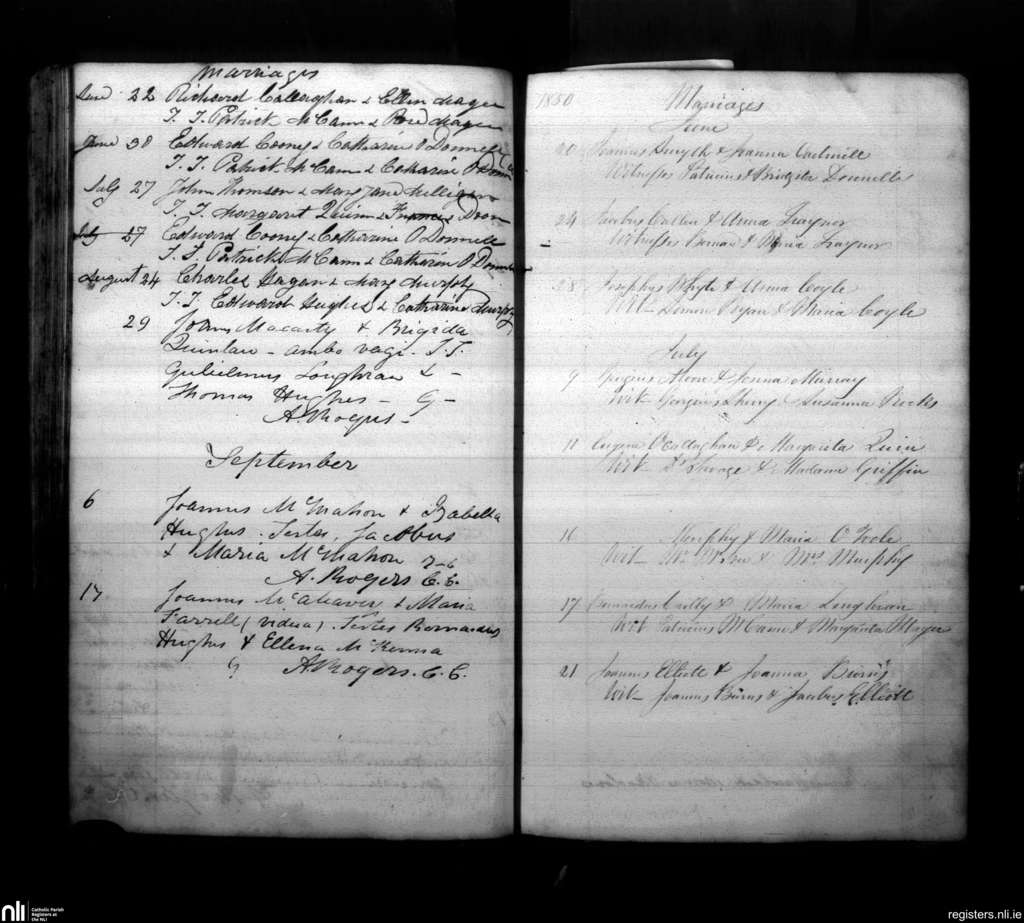 Marriages
June 22 Richard Callaghan & Ellen
T. T. Patrick McCann &
June 30 Edward Cooney & Catharine O Donnell
T. T. Patrick McCann & Catharine O Donnell
July 27 John Thomson & Mary Jane Milligan
T. T. Margaret Quinn & Francis
July 27 Edward Cooney & Catharine O Donnell
T. T. Patrick McCann & Catharine O Donnell
August 24 Charles Hagan & Mary Murphy
T. T. Edward Hughes & Catharine Murphy
29 Joans Macarty & Brigida
Quinlan - ambo vagi. T.T.
Gulielmus Loughran & -
Thomas Hughes - G -
A. Rogers -
September
6 Joannus McMahon & Isabella
Hughes. Testes Jacobus
& Maria McMahon
A. Rogers C.C.
17 Joannus McAleaver & Maria
Farrell (vidua). Testes Bernardus
Hughes & Ellena McKenna
A Rogers. C.C.
1880 Marriages
June
20 Joannus Smyth & Joanna
Witnesses Patricius & Brigita Donnelly
24 Jacobus Cullen & Anna Traynor
Witnesses & Maria Traynor
28 Josephus Whyte & Anna Coyle
Wit- Ryan & Maria Coyle
July
9 Moore & Murray
Wit- Georgius & Susanna
11 Eugene O'Callaghan & Margarita Quin
Wit Savage & Madame Griffin
16 Murphy & Maria O'Toole
Wit- & Mrs Murphy
17 Reilly & Maria Loughran
Wit Patricius McCann & Margarita
21 Joannus Elliott & Joanna Burns
Wit- Joannus Burns & Jacobus Elliott
nli
Catholic Parish
Registers at
the NLI
registers.nli.ie